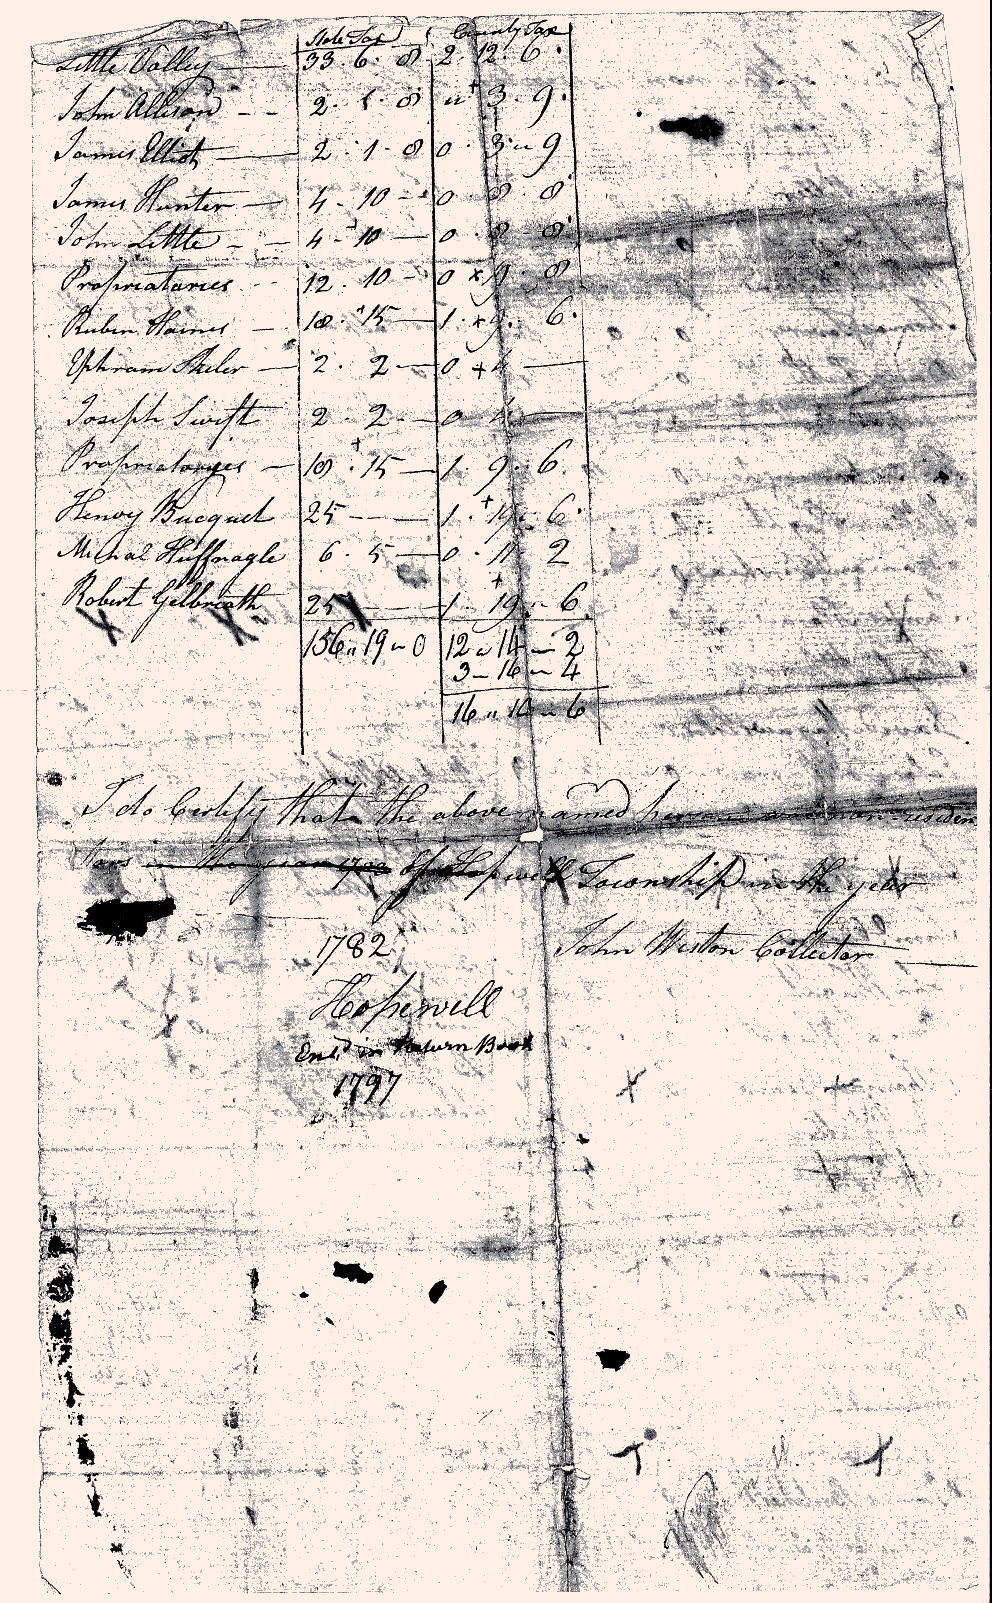 State Tax County Tax
Little Valley 33. 6. 8 2. 12. 6.
John Allison 2. 1. 8 " 3. 9.
James Elliot 2. 1. 8 0. 3 " 9
James Hunter 4. 10 - 0 8 8
John Little 4 - 10 - 0. 8 - 8
Propriataries 12. 10 - 0 9. 8
Rubin Haines 18. 15 - 1. 9. 6.
Ephraim 2. 2 - 0 4 -
Joseph Swift 2. 2. - 0 4.
18. 15 - 1. 9. 6.
Henry Bucquet 25 - - 1. 19. 6.
Michal Huffnagle 6. 5 - 0. 11 2
Robert Gelbreath 25 - - 1 - 19. - 6
156 " 19 " 0 12 " 14 - 2
3 - 16 - 4
16 " 10 " 6
I do Certify that the above named non-residen
tors in the year Of Hopewell Township in the year
1782 John Weston Collector
Hopewell
Ent.d in Return Book
1797